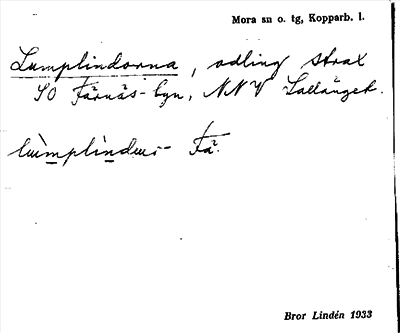 Mora sn o. tg, Kopparb. l.
Lumplindorna, odling strax
SO Färnäs-byn, NNV Lallänget.
Fä.
Bror Lindén 1933